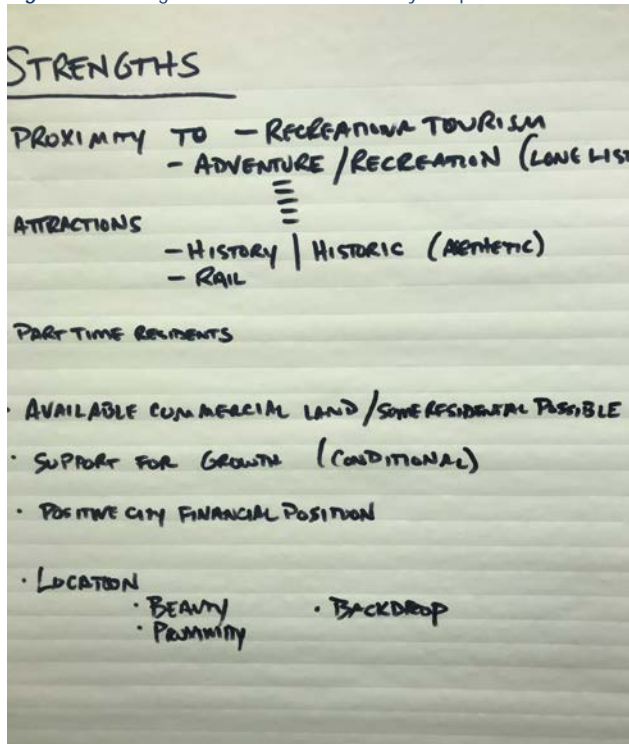 STRENGTHS
PROXIMITY TO - RECREATIONA TOURISM
- ADVENTURE / RECREATION (LONG LIST
ATTRACTIONS
- HISTORY | HISTORIC (AESTHETIC)
- RAIL
PART TIME RESIDENTS
· AVAILABLE COMMERCIAL LAND / SOME RESIDENTIAL POSSIBLE
· SUPPORT FOR GROWTH (CONDITIONAL)
· POSITIVE CITY FINANCIAL POSITION
· LOCATION
· BEAUTY · BACKDROP
· PROXIMITY